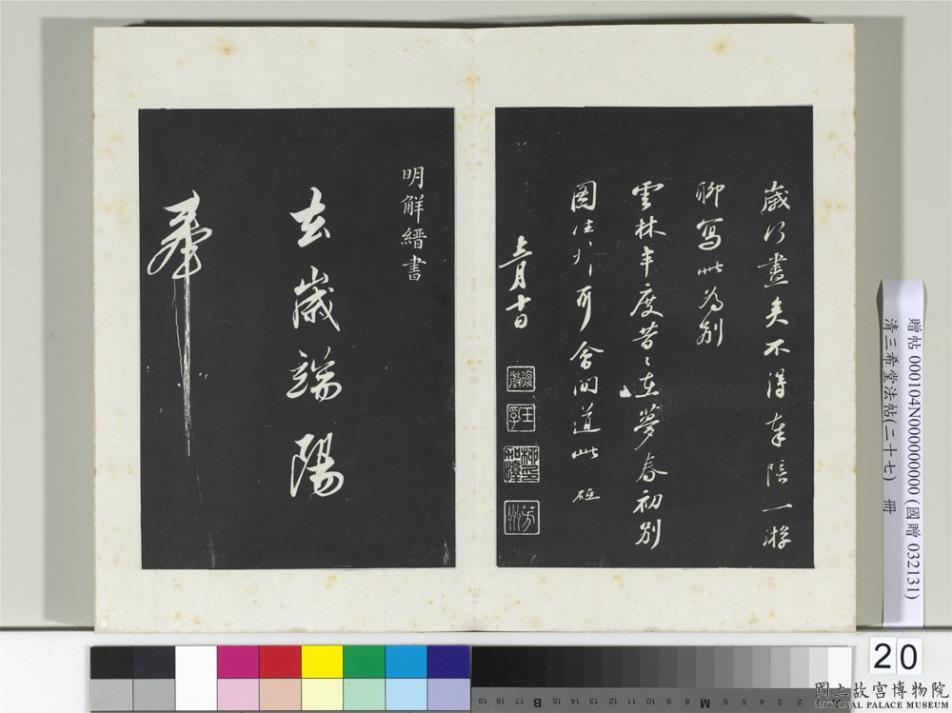 歲行盡矣不得奉陪一游
聊寫此為別
雲林丰度苦々在夢春初別
圖往 會 道此
月十日
明解縉書
去歲端陽
奉
贈帖 000104N000000000 (國贈 032131)
清三希堂法帖(二十七) 冊
20
國立故宮博物院
NATIONAL PALACE MUSEUM